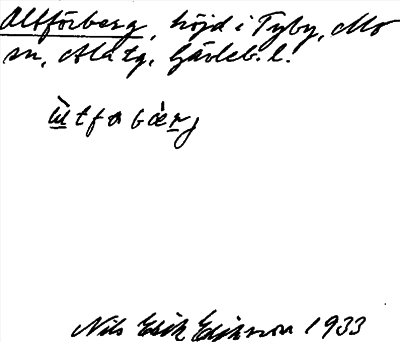 Altförberg, höjd i Tyby, Mo
sn, Ala tg. Gävleb. l.
Nils Erik Eriksson 1933